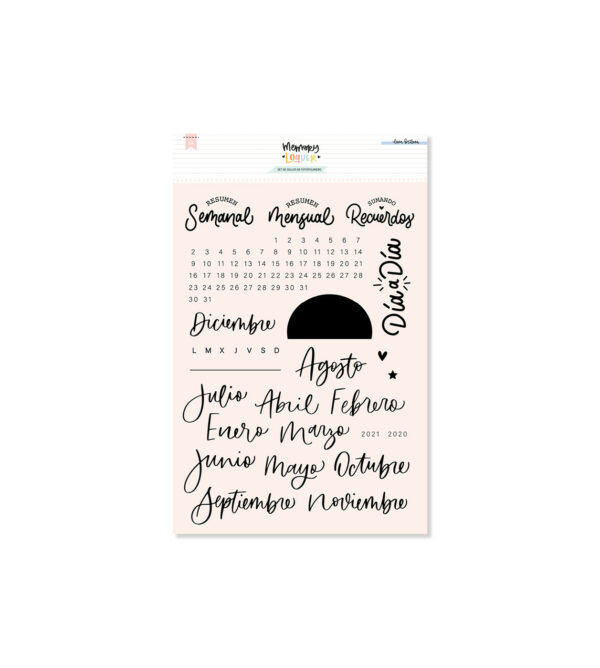 Memory
SET DE SELLOS DE FOTOPOLIMERO
RESUMEN
Semanal
RESUMEN
Mensual
SUMANDO
Recuerdos
1 2 3 4 5 6 7
2 3 4 5 6 7 8 9 10 11 12 13 14
9 10 11 12 13 14 15 16 17 18 19 20 21
16 17 18 19 20 21 22 23 24 25 26 27 28
23 24 25 26 27 28 29 30 31
30 31
Día a Día
Diciembre
L M X J V S D
Agosto
Julio Abril Febrero
Enero Marzo 2021 2020
Junio Mayo Octubre
Septiembre Noviembre